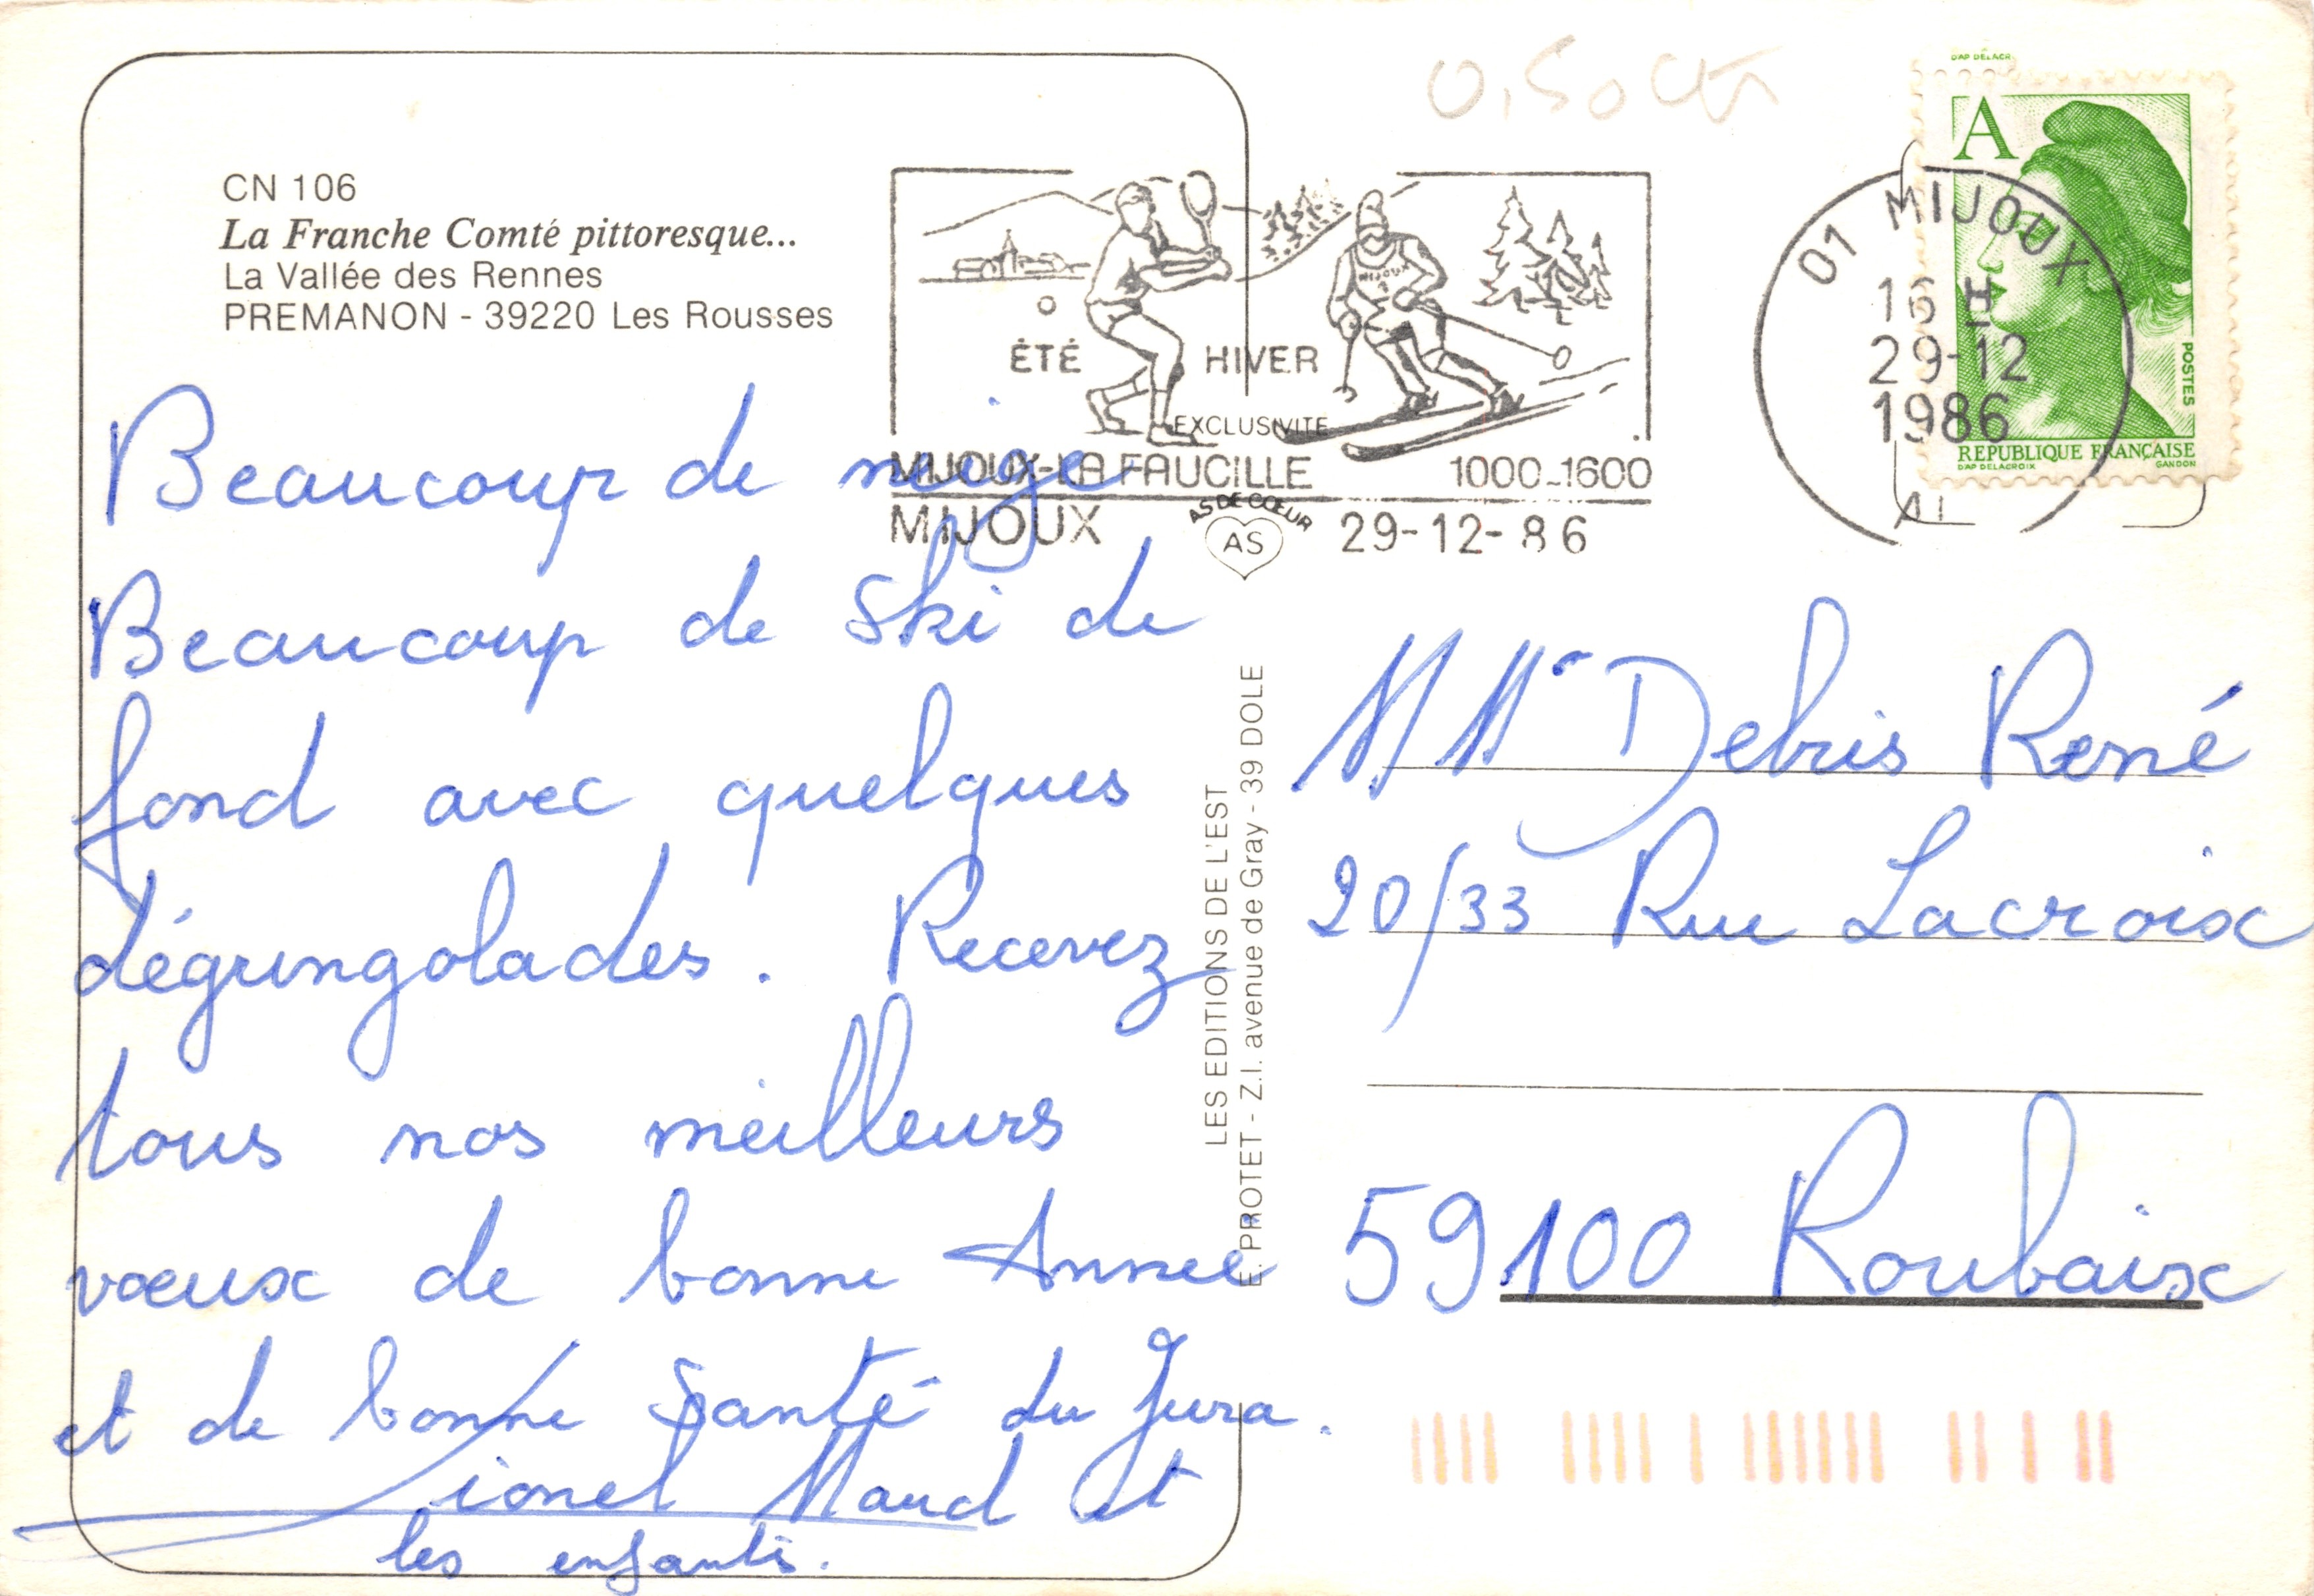 0,50cts
D'AP DELACR
CN 106
La Franche Comté pittoresque...
La Vallée des Rennes
PREMANON - 39220 Les Rousses
A
POSTES
REPUBLIQUE FRANÇAISE
D'AP DELACROIX GANDON
01 MIJOUX
16 H
29-12
1986
A1
MIJOUX
ÉTÉ HIVER
EXCLUSIVITE
MIJOUX-LA FAUCILLE 1000_1600
MIJOUX AS DE CŒUR AS 29-12-86
Beaucoup de neige
Beaucoup de Ski de
fond avec quelques
dégringolades. Recevez
tous nos meilleurs
vœux de bonne Année
et de bonne Santé du Jura.
Lionel Maud et
les enfants.
LES EDITIONS DE L'EST
E. PROTET - Z.I. avenue de Gray - 39 DOLE
M Mr Debris René
20/33 Rue Lacroix
59100 Roubaix